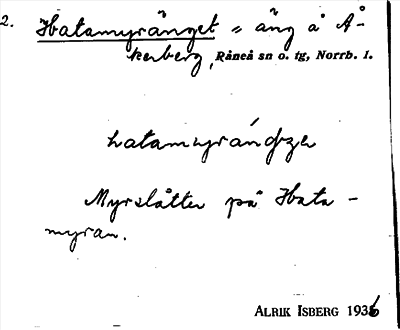 2. Hatamyränget = äng å Å-
kerberg, Råneå sn o. tg, Norrb. l.
Myrslåtter på Hata-
myran.
ALRIK ISBERG 1936